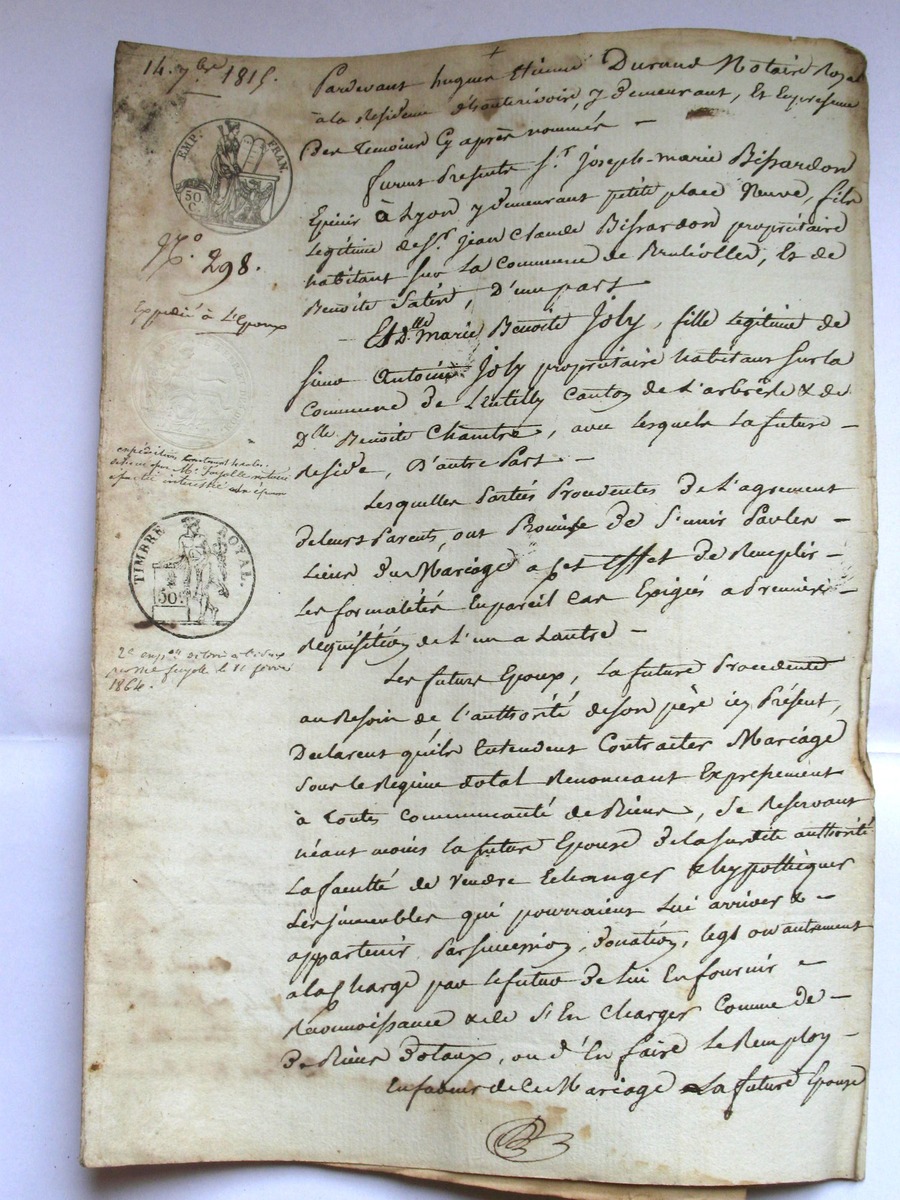 14. 7bre 1815.
EMP. FRAN.
50 C.
N.° 298.
Expedié à L'Epoux
expédition
délivré par Me notaire
TIMBRE ROYAL.
50.
2e expon délivré à l'époux
par Me le 11 février
1864.
Pardevant hugues Etienne Durand Notaire Royal
à la Residence d'hauterivoire, y demeurant, Et En présence
Des temoins Cy après nommés —
furent Presents Sr. Joseph-marie Bissardon
Epicier à Lyon y demeurant petite place Neuve, fils
Legitime de Sr. Jean Claude Bissardon propriétaire
habitant sur La Commune de Brullolles, Et de
Benoite Satin, D'une part
Et Dlle marie Benoite Joly, fille Legitime de
sieur Antoine Joly propriétaire habitant sur la
Commune de Lentilly Canton de L'arbrêsle & de
Dlle Benoite Chambe, avec Lesquels La future —
Reside, D'autre Part —
Lesquelles Parties Procedentes De L'agrement
de leurs Parents, ont Promise De S'unir Par les —
Liens Du Mariage a Cet Effet De Remplir —
Les formalités En pareil Cas Exigées a Premiere —
Requisition de L'un a Lautre —
Les futurs Epoux, La future Procedente
au Besoin de L'authorité de son père icy Présent,
Declarent qu'ils Entendent Contracter Mariage
Sous le Regime dotal Renoncant Expressement
à Toutes Communauté de Biens, Se Reservant
néant moins la future Epouse De la susdite authorité
La faculté de Vendre Echanger & hypothèquer
Les immeubles qui pourraient Lui arriver & —
appartenir Par succession, Donation, legs ou autrement
a la Charge par le futur De lui En fournir —
Reconnoissance & de S'En Charger Comme de —
De Biens Dotaux, ou d'En faire Le Remploy —
En faveur de Ce Mariage La future Epouse